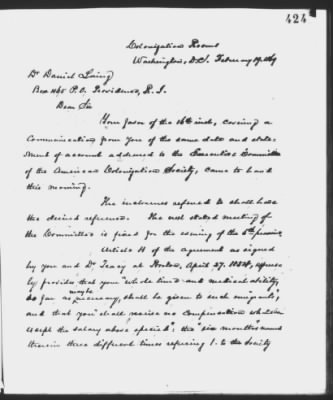 424
Colonization Rooms
Washington, D.C. February 19. 1869
Dr Daniel Laing
Box 1165 P.O. Providence, R.I.
Dear Sir
Your favor of the 16th inst, covering a
communication from you of the same date and state-
ment of account addressed to the Executive Committee
of the American Colonization Society, came to hand
this morning.
The inclosures refered to shall have
the desired reference. The next stated meeting of
the Committee is fixed for the evening of the 5th proximo.
Article 4 of the agreement as signed
by you and Dr Tracy at Boston, April 27. 1854,
by provides that your "whole time and medical ability,
so far as may be necessary, shall be given to such emigrants";
and that you "shall receive no compensation whatever
except the salary above specified": the "six months" named
therein three different times refering 1. to the Society